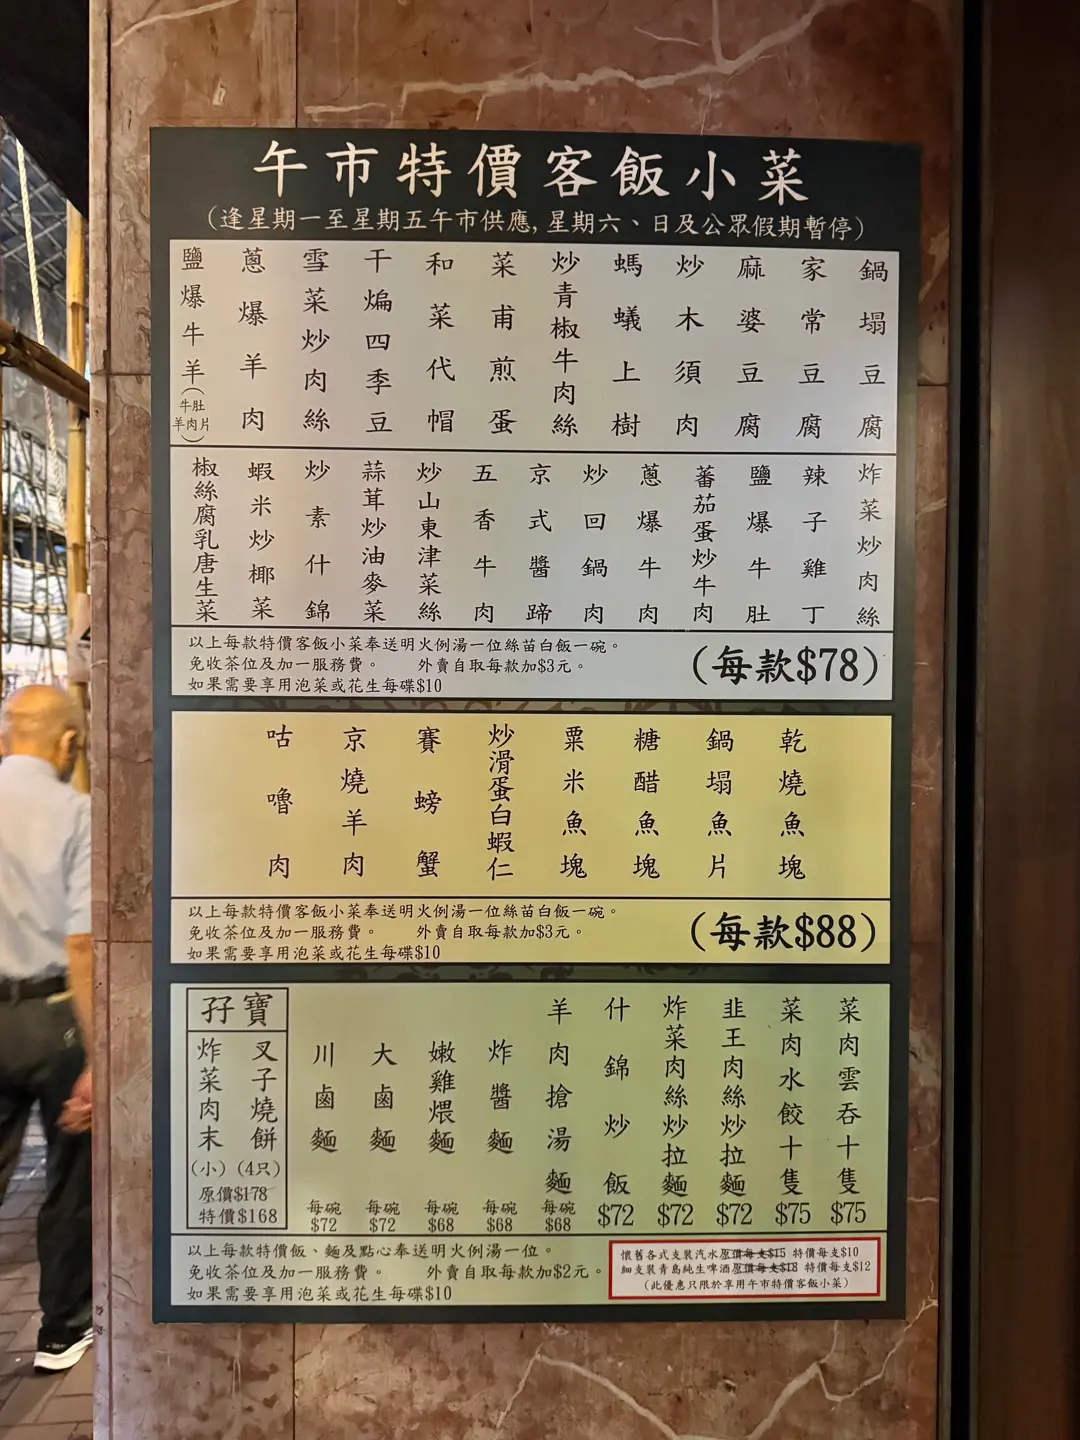 午市特價客飯小菜
(逢星期一至星期五午市供應, 星期六、日及公眾假期暫停)
鍋塌豆腐
家常豆腐
麻婆豆腐
炒木須肉
螞蟻上樹
炒青椒牛肉絲
菜甫煎蛋
和菜代帽
干煸四季豆
雪菜炒肉絲
蔥爆羊肉
鹽爆牛羊(牛肚羊肉片)
炸菜炒肉絲
辣子雞丁
鹽爆牛肚
蕃茄蛋炒牛肉
蔥爆牛肉
炒回鍋肉
京式醬蹄
五香牛肉
炒山東津菜絲
蒜茸炒油麥菜
炒素什錦
蝦米炒椰菜
椒絲腐乳唐生菜
以上每款特價客飯小菜奉送明火例湯一位絲苗白飯一碗。
免收茶位及加一服務費。 外賣自取每款加$3元。
如果需要享用泡菜或花生每碟$10
(每款$78)
乾燒魚塊
鍋塌魚片
糖醋魚塊
粟米魚塊
炒滑蛋白蝦仁
賽螃蟹
京燒羊肉
咕嚕肉
以上每款特價客飯小菜奉送明火例湯一位絲苗白飯一碗。
免收茶位及加一服務費。 外賣自取每款加$3元。
如果需要享用泡菜或花生每碟$10
(每款$88)
菜肉雲吞十隻 $75
菜肉水餃十隻 $75
韭王肉絲炒拉麵 $72
炸菜肉絲炒拉麵 $72
什錦炒飯 $72
羊肉搶湯麵 每碗 $68
炸醬麵 每碗 $68
嫩雞煨麵 每碗 $68
大鹵麵 每碗 $72
川鹵麵 每碗 $72
孖寶
叉子燒餅(4只)
炸菜肉末(小)
原價$178
特價$168
以上每款特價飯、麵及點心奉送明火例湯一位。
免收茶位及加一服務費。 外賣自取每款加$2元。
如果需要享用泡菜或花生每碟$10
懷舊各式支裝汽水原價每支$15 特價每支$10
細支裝青島純生啤酒原價每支$18 特價每支$12
(此優惠只限於享用午市特價客飯小菜)